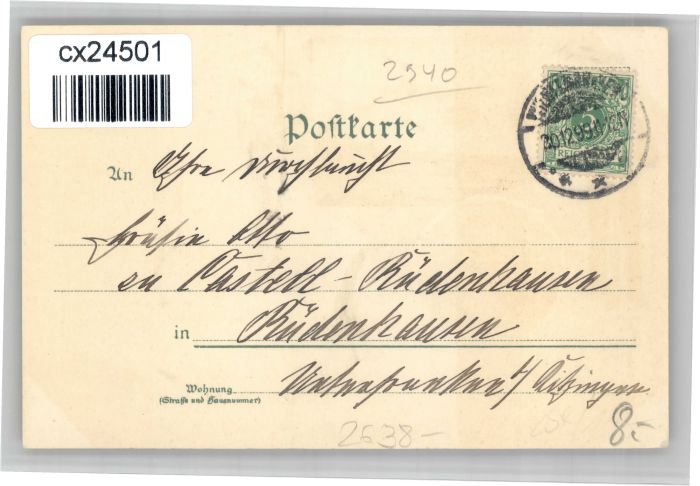 cx24501
2540
Postkarte
An Ihre Durchlaucht
Gräfin Otto
zu Castell-Rüdenhausen
in Rüdenhausen
Wohnung
(Straße und Hausnummer)
Unterfranken b/ Kitzingen
2638-
8.-
5
REICHS